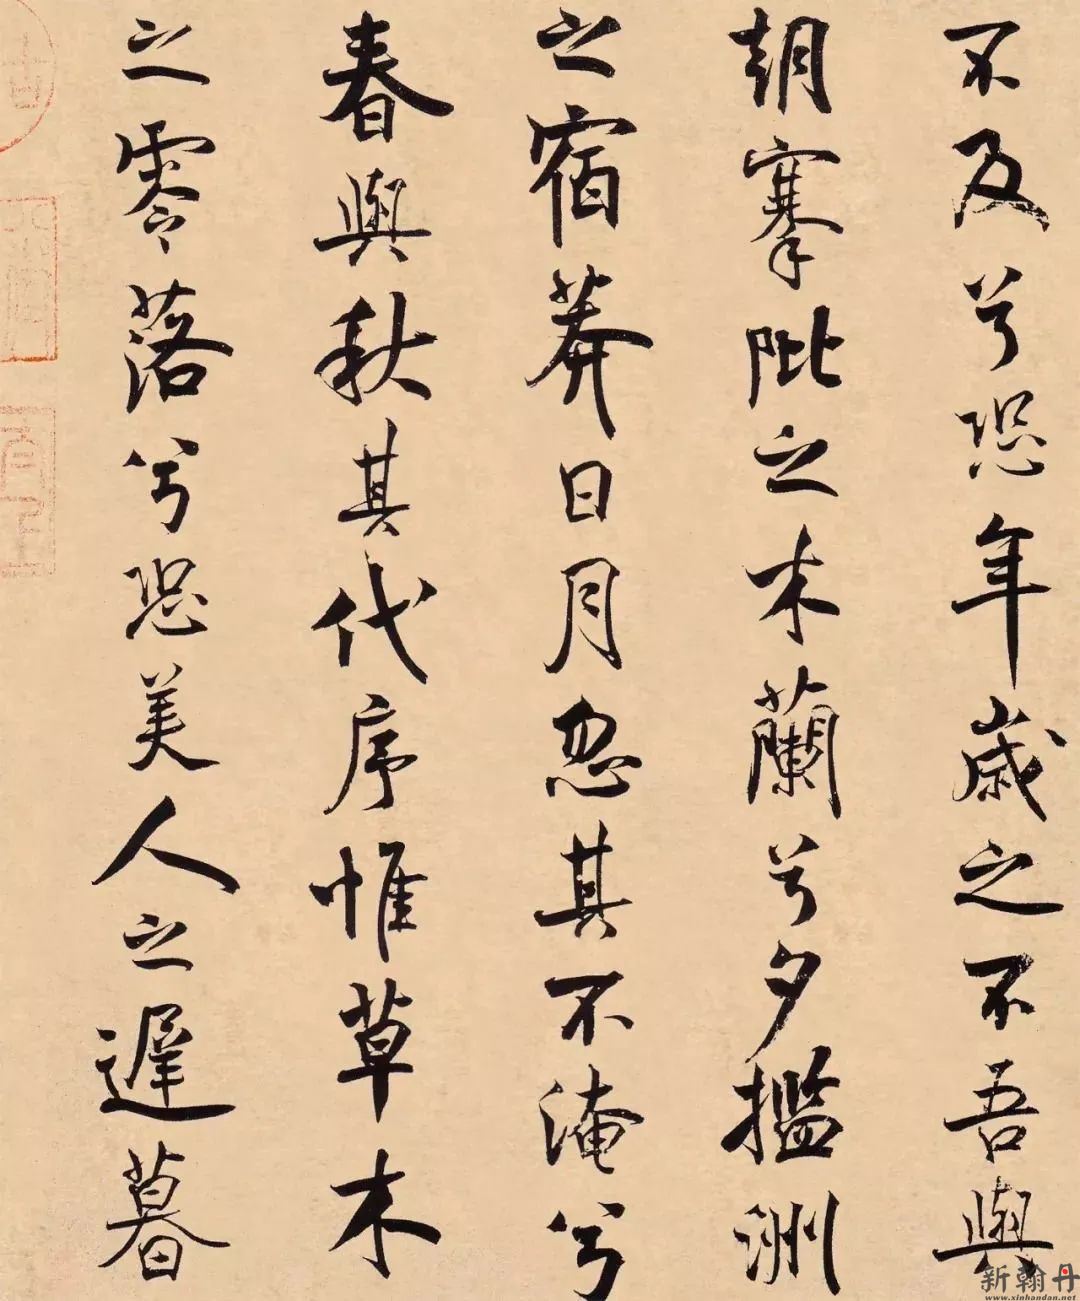 不及兮恐年歲之不吾與
朝搴阰之木蘭兮夕擥洲
之宿莽日月忽其不淹兮
春與秋其代序惟草木
之零落兮恐美人之遲暮
新翰丹
www.xinhandan.net